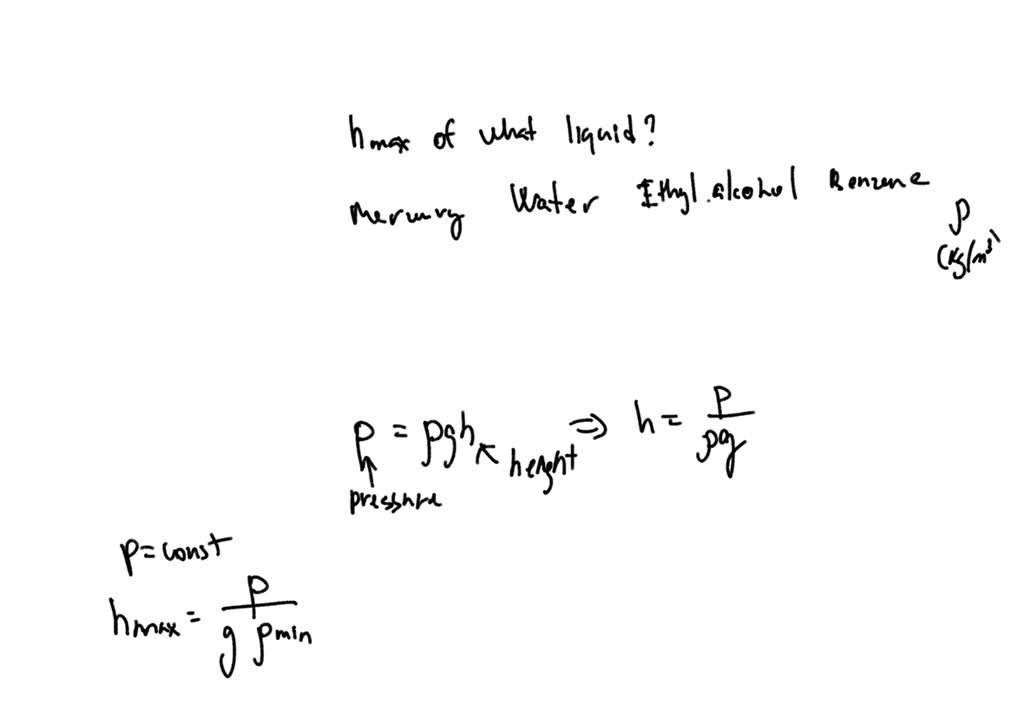 hmax of what liquid?
Mercury Water Ethyl alcohol Benzene
ρ
(kg/m³)
P = ρgh ↖ height ⇒ h = P/ρg
↑
pressure
P = const
hmax = P/g ρmin